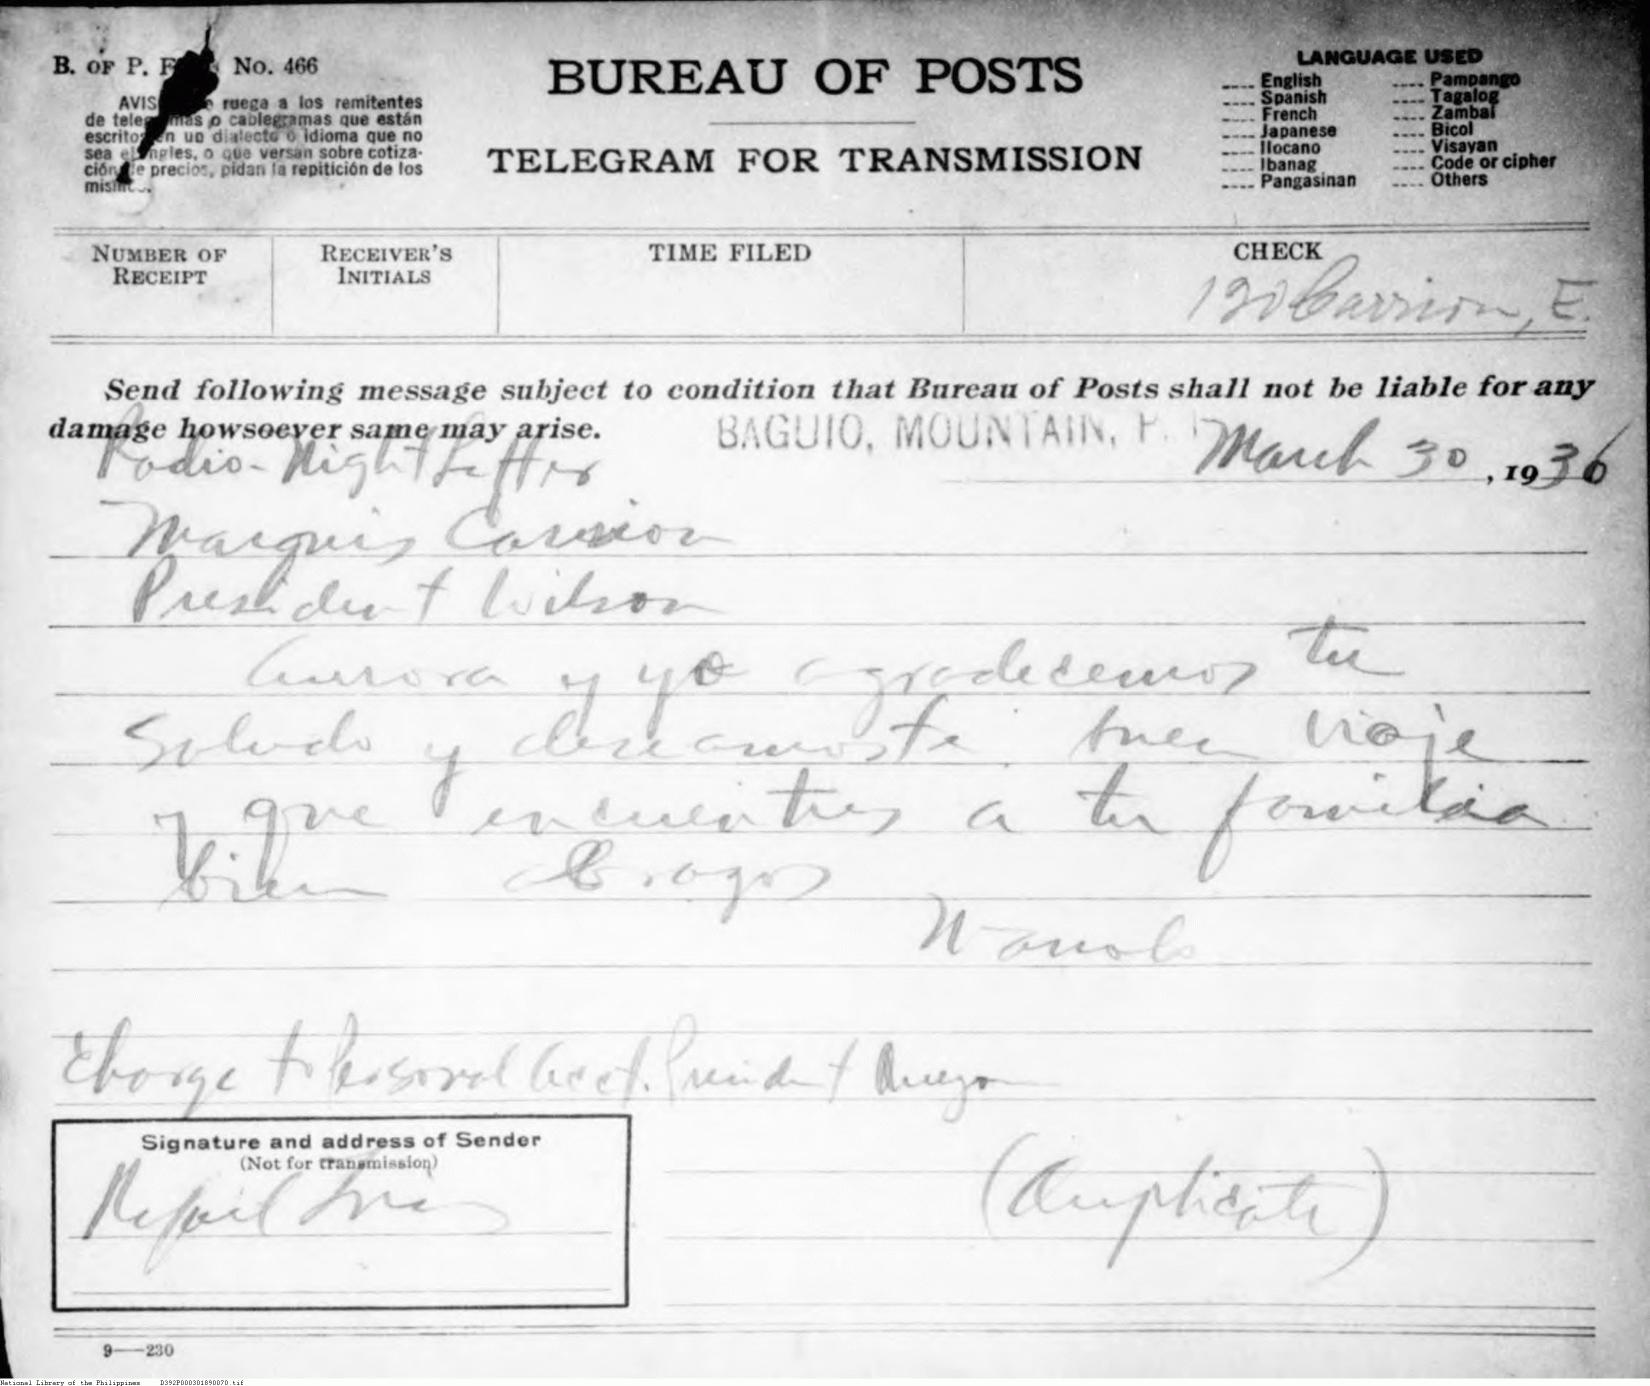 B. OF P. No. 466
AVIS ruega a los remitentes
de telegramas o cablegramas que están
escritos en un dialecto o idioma que no
sea el ingles, o que versan sobre cotiza-
ción de precios, pidan la repitición de los
mismos.
BUREAU OF POSTS
TELEGRAM FOR TRANSMISSION
LANGUAGE USED
.... English .... Pampango
.... Spanish .... Tagalog
.... French .... Zambal
.... Japanese .... Bicol
.... Ilocano .... Visayan
.... Ibanag .... Code or cipher
.... Pangasinan .... Others
NUMBER OF RECEIPT
RECEIVER'S INITIALS
TIME FILED
CHECK
120 Carrion, E.
Send following message subject to condition that Bureau of Posts shall not be liable for any
damage howsoever same may arise.
BAGUIO, MOUNTAIN, P. I.
March 30, 1936
Radio-Night Letter
Marquis Carrion
President Wilson
Aurora y yo agradecemos tu
saludo y deseamoste buen viaje
y que encuentres a tu familia
bien Abrazos
Manolo
Charge to Personal Acct. President Quezon
Signature and address of Sender
(Not for transmission)
Rafael
(Duplicate)
9—230
National Library of the Philippines D392P000301890070.tif